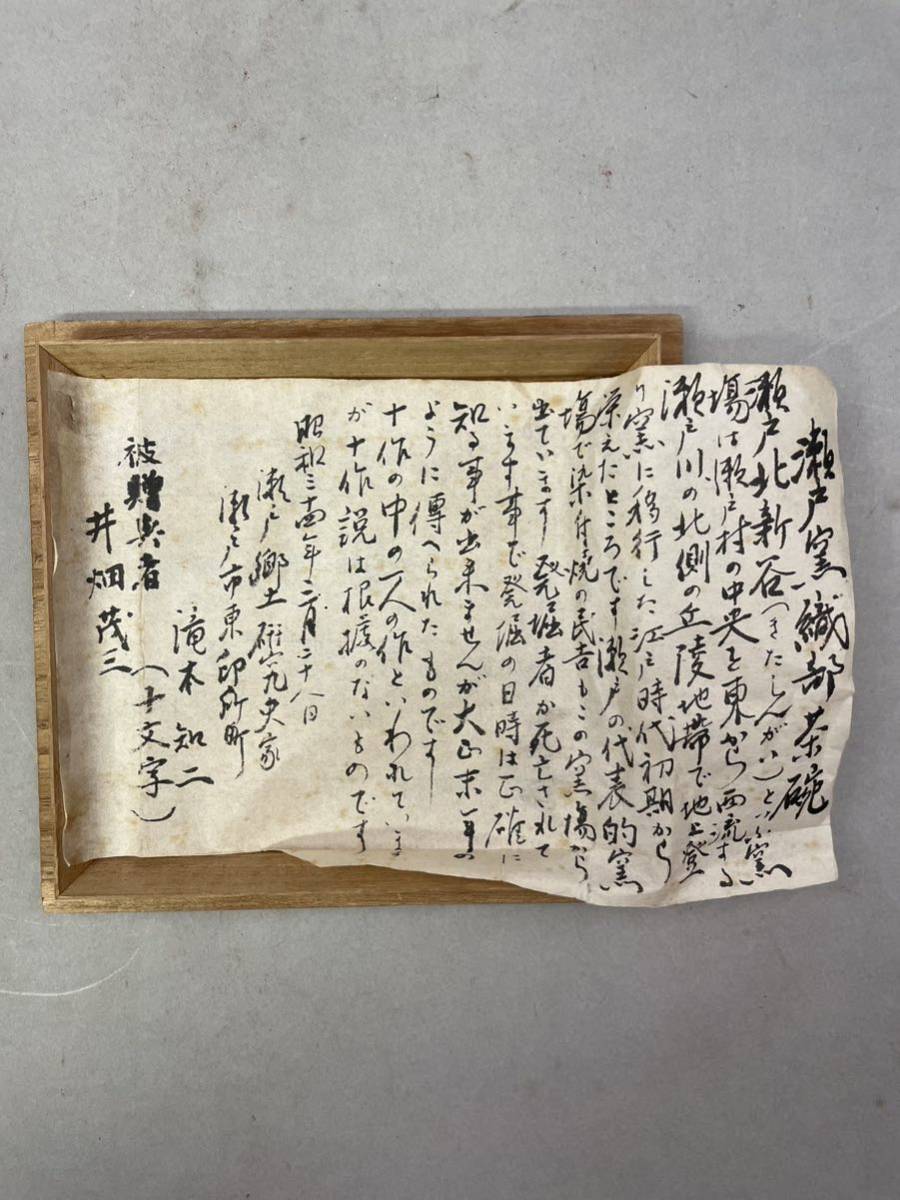 瀬戸窯織部茶碗
瀬戸北新谷(きたしんがい)という窯
場は瀬戸村の中央を東から西流する
瀬戸川の北側の丘陵地帯で地上登
り窯に移行した江戸時代初期から
栄えたところです瀬戸の代表的窯
場で染付焼の民吉もこの窯場から
出ています 発掘者が死亡されて
います事で発掘の日時は正確に
知る事が出来ませんが大正末年の
ように傳へられたものです
十作の中の一人の作といわれています
が十作説は根拠のないものです
昭和三十四年二月二十八日
瀬戸郷土研究史家
瀬戸市東印所町
滝本知二
(十文字)
被贈与者
井畑茂三